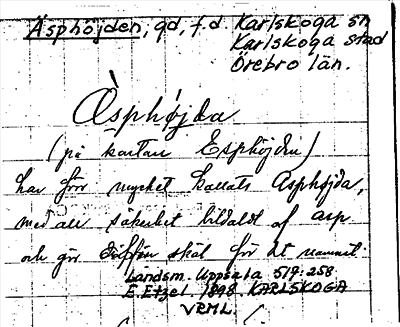 Åsphöjden, gd, f.d. Karlskoga sn
Karlskoga stad
Örebro län.
Àsphöjda
(på kartan Esphöjdin)
har förr mycket kallats Asphöjda,
med all säkerhet bildadt af asp
och gör skäl för det namnet.
Landsm. Uppsala 519:258
E. Etzel. 1898. KARLSKOGA
VRML